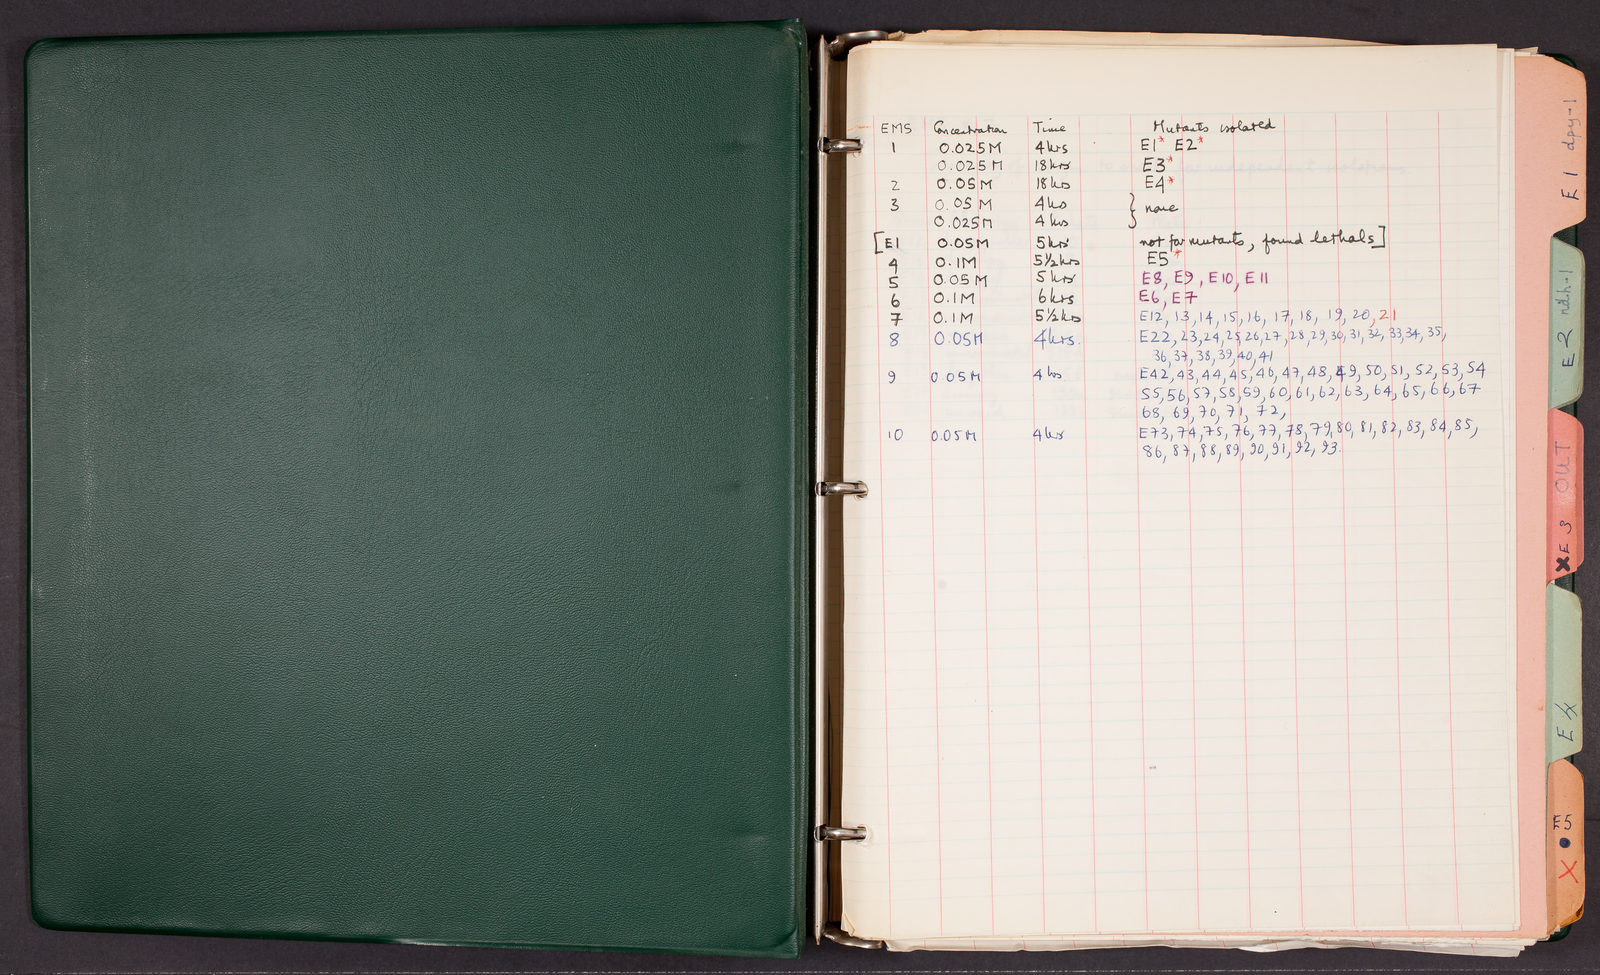 EMS Concentration Time Mutants isolated
1 0.025M 4hrs E1* E2*
0.025M 18hrs E3*
2 0.05M 18hrs E4*
3 0.05M 4hrs } none
0.025M 4hrs
[E1 0.05M 5hrs not for mutants, found lethals]
4 0.1M 5½hrs E5*
5 0.05M 5hrs E8, E9, E10, E11
6 0.1M 6hrs E6, E7
7 0.1M 5½hrs E12, 13, 14, 15, 16, 17, 18, 19, 20, 21
8 0.05M 4hrs. E22, 23, 24, 25, 26, 27, 28, 29, 30, 31, 32, 33, 34, 35,
36, 37, 38, 39, 40, 41
9 0.05M 4hrs E42, 43, 44, 45, 46, 47, 48, 49, 50, 51, 52, 53, 54
55, 56, 57, 58, 59, 60, 61, 62, 63, 64, 65, 66, 67
68, 69, 70, 71, 72,
10 0.05M 4hr E73, 74, 75, 76, 77, 78, 79, 80, 81, 82, 83, 84, 85,
86, 87, 88, 89, 90, 91, 92, 93.
E1 dpy-1
E2
XE3 OUT
E4
E5
X